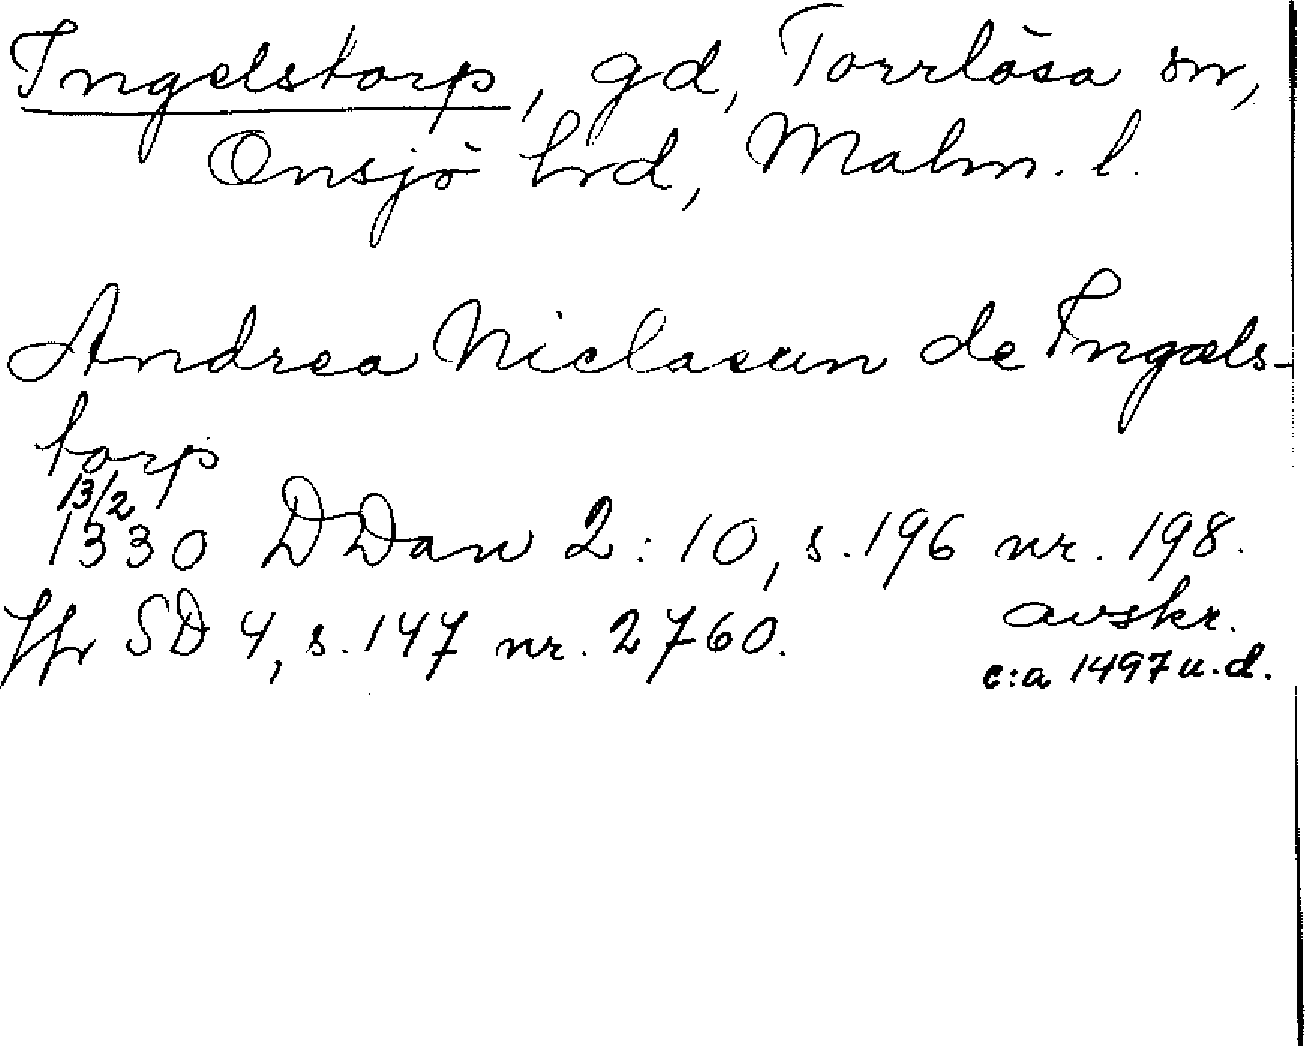 Ingelstorp, gd, Torrlösa sn,
Onsjö hrd, Malm. l.
Andrea Niclasun de Ingæls-
torp
13/2
1330 DDan 2:10, s. 196 nr. 198.
avskr.
Jfr SD 4, s. 147 nr. 2760.
c:a 1497 u.d.